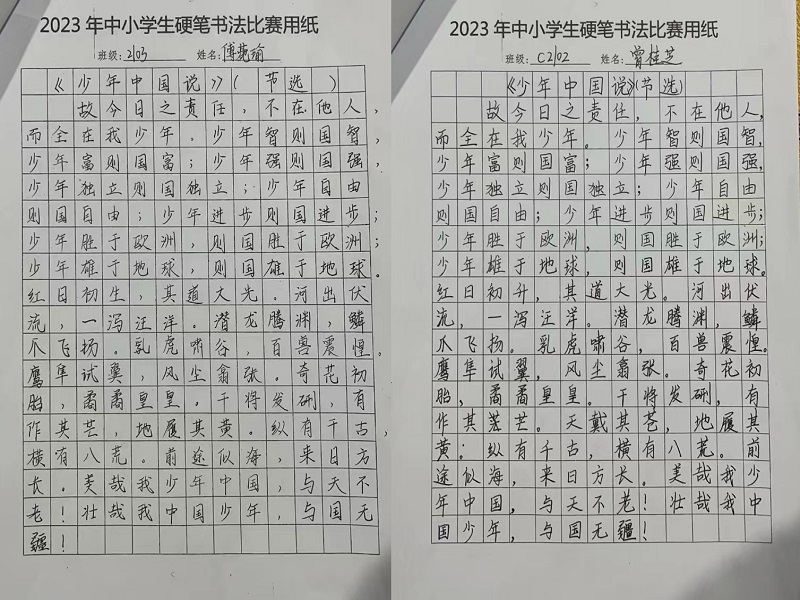 2023年中小学生硬笔书法比赛用纸
班级:2103 姓名:傅蕘瑜
《少年中国说》(节选)
故今日之责任,不在他人,
而全在我少年。少年智则国智,
少年富则国富;少年强则国强,
少年独立则国独立;少年自由
则国自由;少年进步则国进步;
少年胜于欧洲,则国胜于欧洲;
少年雄于地球,则国雄于地球。
红日初生,其道大光。河出伏
流,一泻汪洋。潜龙腾渊,鳞
爪飞扬。乳虎啸谷,百兽震惶。
鹰隼试翼,风尘翕张。奇花初
胎,矞矞皇皇。干将发硎,有
作其芒,地履其黄。纵有千古,
横有八荒。前途似海,来日方
长。美哉我少年中国,与天不
老!壮哉我中国少年,与国无
疆!
2023年中小学生硬笔书法比赛用纸
班级:C2102 姓名:曾桂芝
《少年中国说》(节选)
故今日之责任,不在他人,
而全在我少年。少年智则国智,
少年富则国富;少年强则国强,
少年独立则国独立;少年自由
则国自由;少年进步则国进步;
少年胜于欧洲,则国胜于欧洲;
少年雄于地球,则国雄于地球。
红日初升,其道大光。河出伏
流,一泻汪洋。潜龙腾渊,鳞
爪飞扬。乳虎啸谷,百兽震惶。
鹰隼试翼,风尘翕张。奇花初
胎,矞矞皇皇。干将发硎,有
作其芒。天戴其苍,地履其
黄;纵有千古,横有八荒。前
途似海,来日方长。美哉我少
年中国,与天不老!壮哉我中
国少年,与国无疆!